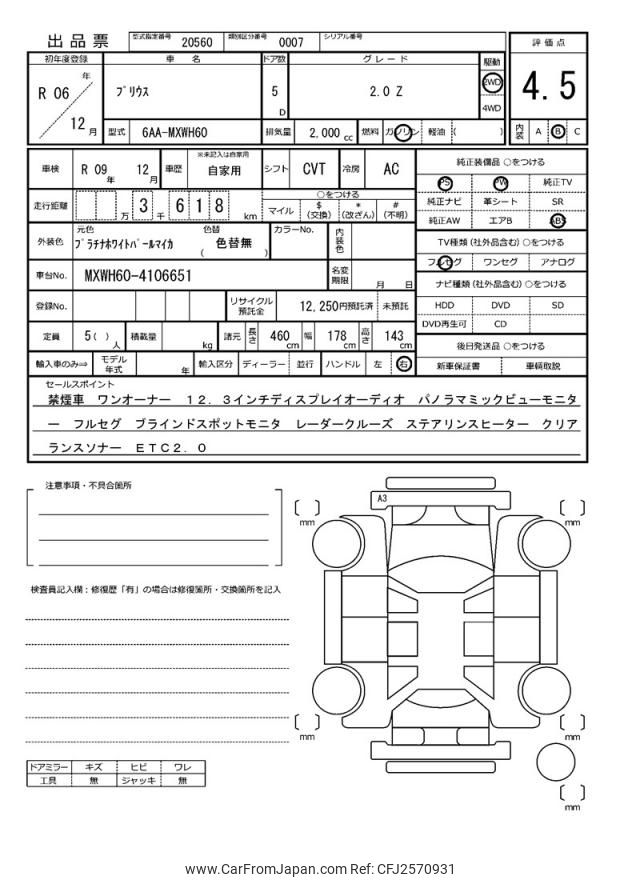 出品票 型式指定番号 20560 類別区分番号 0007 シリアル番号
評価点
4.5
内装 A B C
初年度登録 車名 ドア数 グレード 駆動
R 06 年 12 月 プリウス 5 D 2.0 Z 2WD 4WD
型式 6AA-MXWH60 排気量 2,000 cc 燃料 ガソリン 軽油 ( )
車検 R 09 年 12 月 車歴 ※未記入は自家用 自家用 シフト CVT 冷房 AC
走行距離 万 3 千 6 1 8 km ○をつける
マイル $(交換) *(改ざん) #(不明)
外装色 元色 プラチナホワイトパールマイカ 色替 ( 色替無 ) カラーNo. 内装色
車台No. MXWH60-4106651 名変期限 月 日
登録No. リサイクル預託金 12,250円預託済 未預託
定員 5 ( ) 人 積載量 kg 諸元 長さ 460 cm 幅 178 cm 高さ 143 cm
輸入車のみ⇒ モデル年式 年 輸入区分 ディーラー 並行 ハンドル 左 右
純正装備品 ○をつける
PS PW 純正TV
純正ナビ 革シート SR
純正AW エアB ABS
TV種類 (社外品含む) ○をつける
フルセグ ワンセグ アナログ
ナビ種類 (社外品含む) ○をつける
HDD DVD SD
DVD再生可 CD
後日発送品 ○をつける
新車保証書 車輌取説
セールスポイント
禁煙車 ワンオーナー 12.3インチディスプレイオーディオ パノラマミックビューモニタ
ー フルセグ ブラインドスポットモニタ レーダークルーズ ステアリンスヒーター クリア
ランスソナー ETC2.0
注意事項・不具合箇所
検査員記入欄：修復歴「有」の場合は修復箇所・交換箇所を記入
ドアミラー キズ ヒビ ワレ
工具 無 ジャッキ 無
A3
mm
mm
mm
mm
mm
www.CarFromJapan.com Ref: CFJ2570931